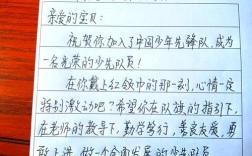 亲爱的宝贝：
祝贺你加入了中国少年先锋队，成为
一名光荣的少先队员！
在你戴上红领巾的那一刻，心情一定
特别激动吧？希望你在队旗的指引下，
在老师的教导下，勤学笃行，善良友爱，勇
敢上进，做一个全面发展的少先队员